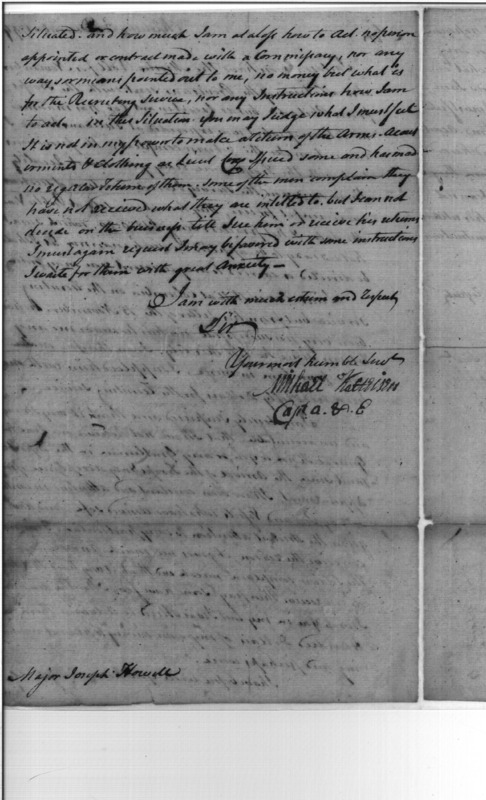 Situated. and how much I am at a loss how to Act. no person
appointed or contract made with a Commissary, nor any
ways or means pointed out to me, no money but what is
for the Recruiting Service, nor any Instructions how I am
to act. in this Situation you may Judge what I must feel
It is not in my power to make a return of the Arms. Accout
erments & Clothing as Lieut issued some and has made
no regular return of them. some of the men complain they
have not received what they are intitled to. but I can not
decide on the business till I see him or receive his returns
I must again request I may be favored with some instructions
I wait for them with great Anxiety—
I am with much esteem and Respect
Sir
Your most humble Servt
Mihall
Capt a. & E
Major Joseph Howell